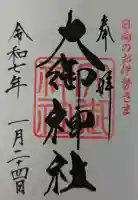 日向のお伊勢さま
奉拝
大御神社
令和七年
一月二十四日